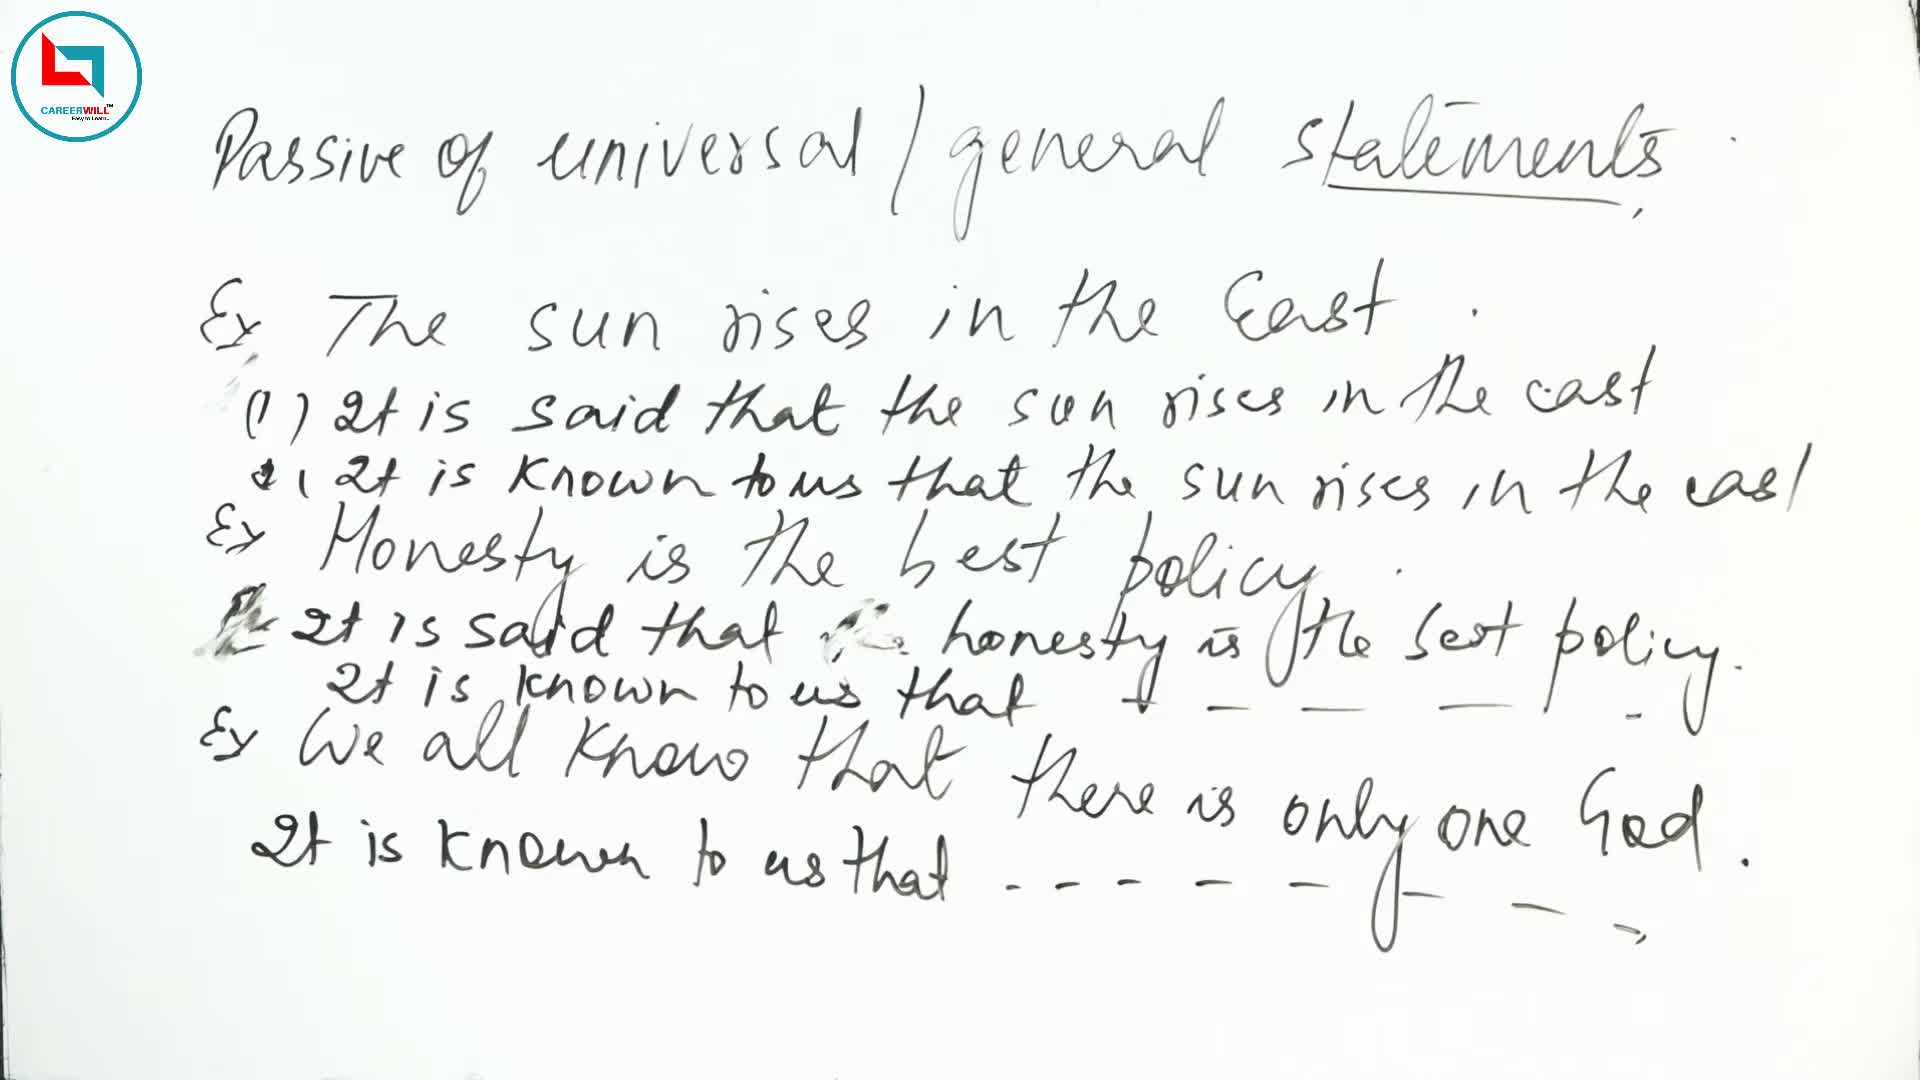 CAREERWILL™
Easy to Learn..
Passive of universal / general statements.
Ex The sun rises in the East.
(1) It is said that the sun rises in the east
2( It is known to us that the sun rises in the east
Ex Honesty is the best policy.
It is said that honesty is the best policy.
It is known to us that - - - - -
Ex We all know that there is only one God.
It is known to us that - - - - - - - -